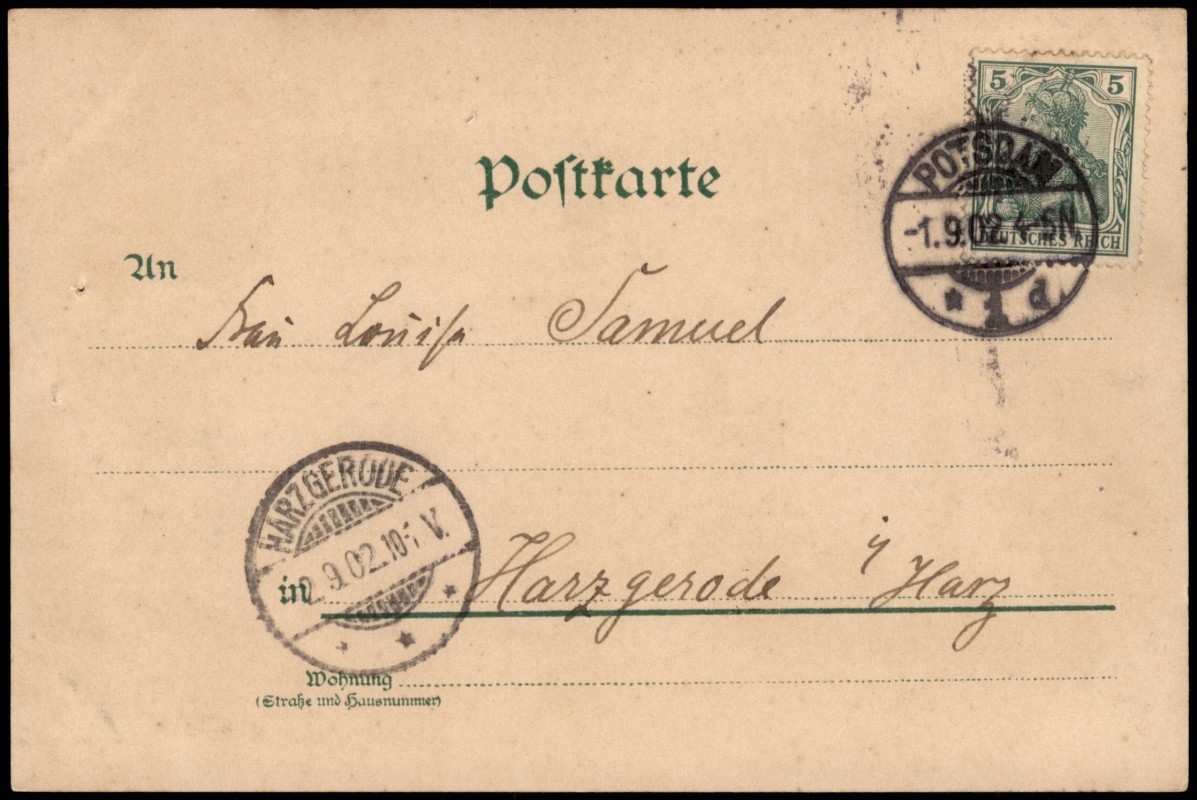 5 5
POTSDAM
-1.9.02. 4-5N.
* 1 d
DEUTSCHES REICH
Postkarte
An
Frau Louise Samuel
HARZGERODE
2.9.02. 10- V.
in Harzgerode i/ Harz
Wohnung
(Straße und Hausnummer)